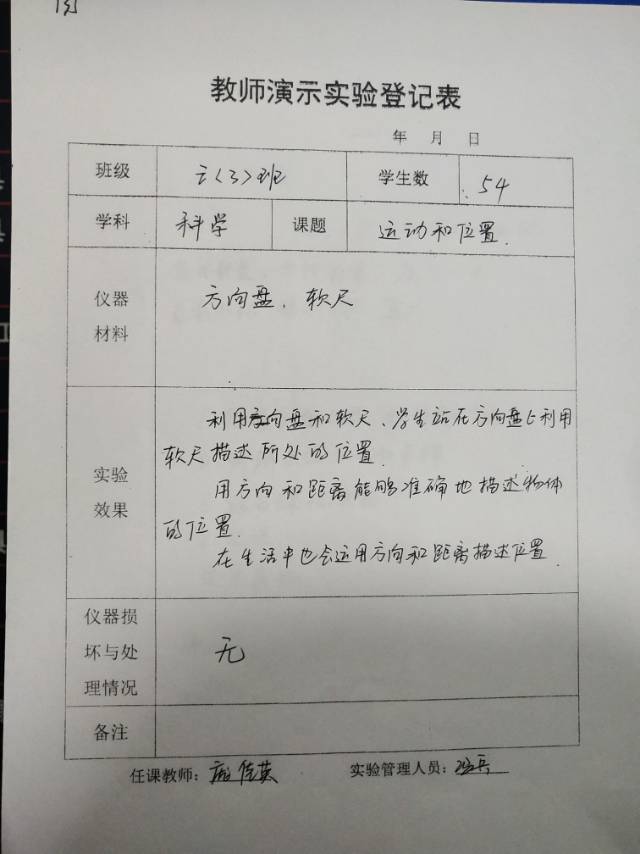 教师演示实验登记表
年 月 日
班级 三〈3〉班 学生数 54
学科 科学 课题 运动和位置.
仪器材料 方向盘、软尺
利用方向盘和软尺、学生站在方向盘上利用
软尺描述所处的位置.
实验效果 用方向和距离能够准确地描述物体
的位置.
在生活中也会运用方向和距离描述位置.
仪器损坏与处理情况 无
备注
任课教师: 佳英 实验管理人员: